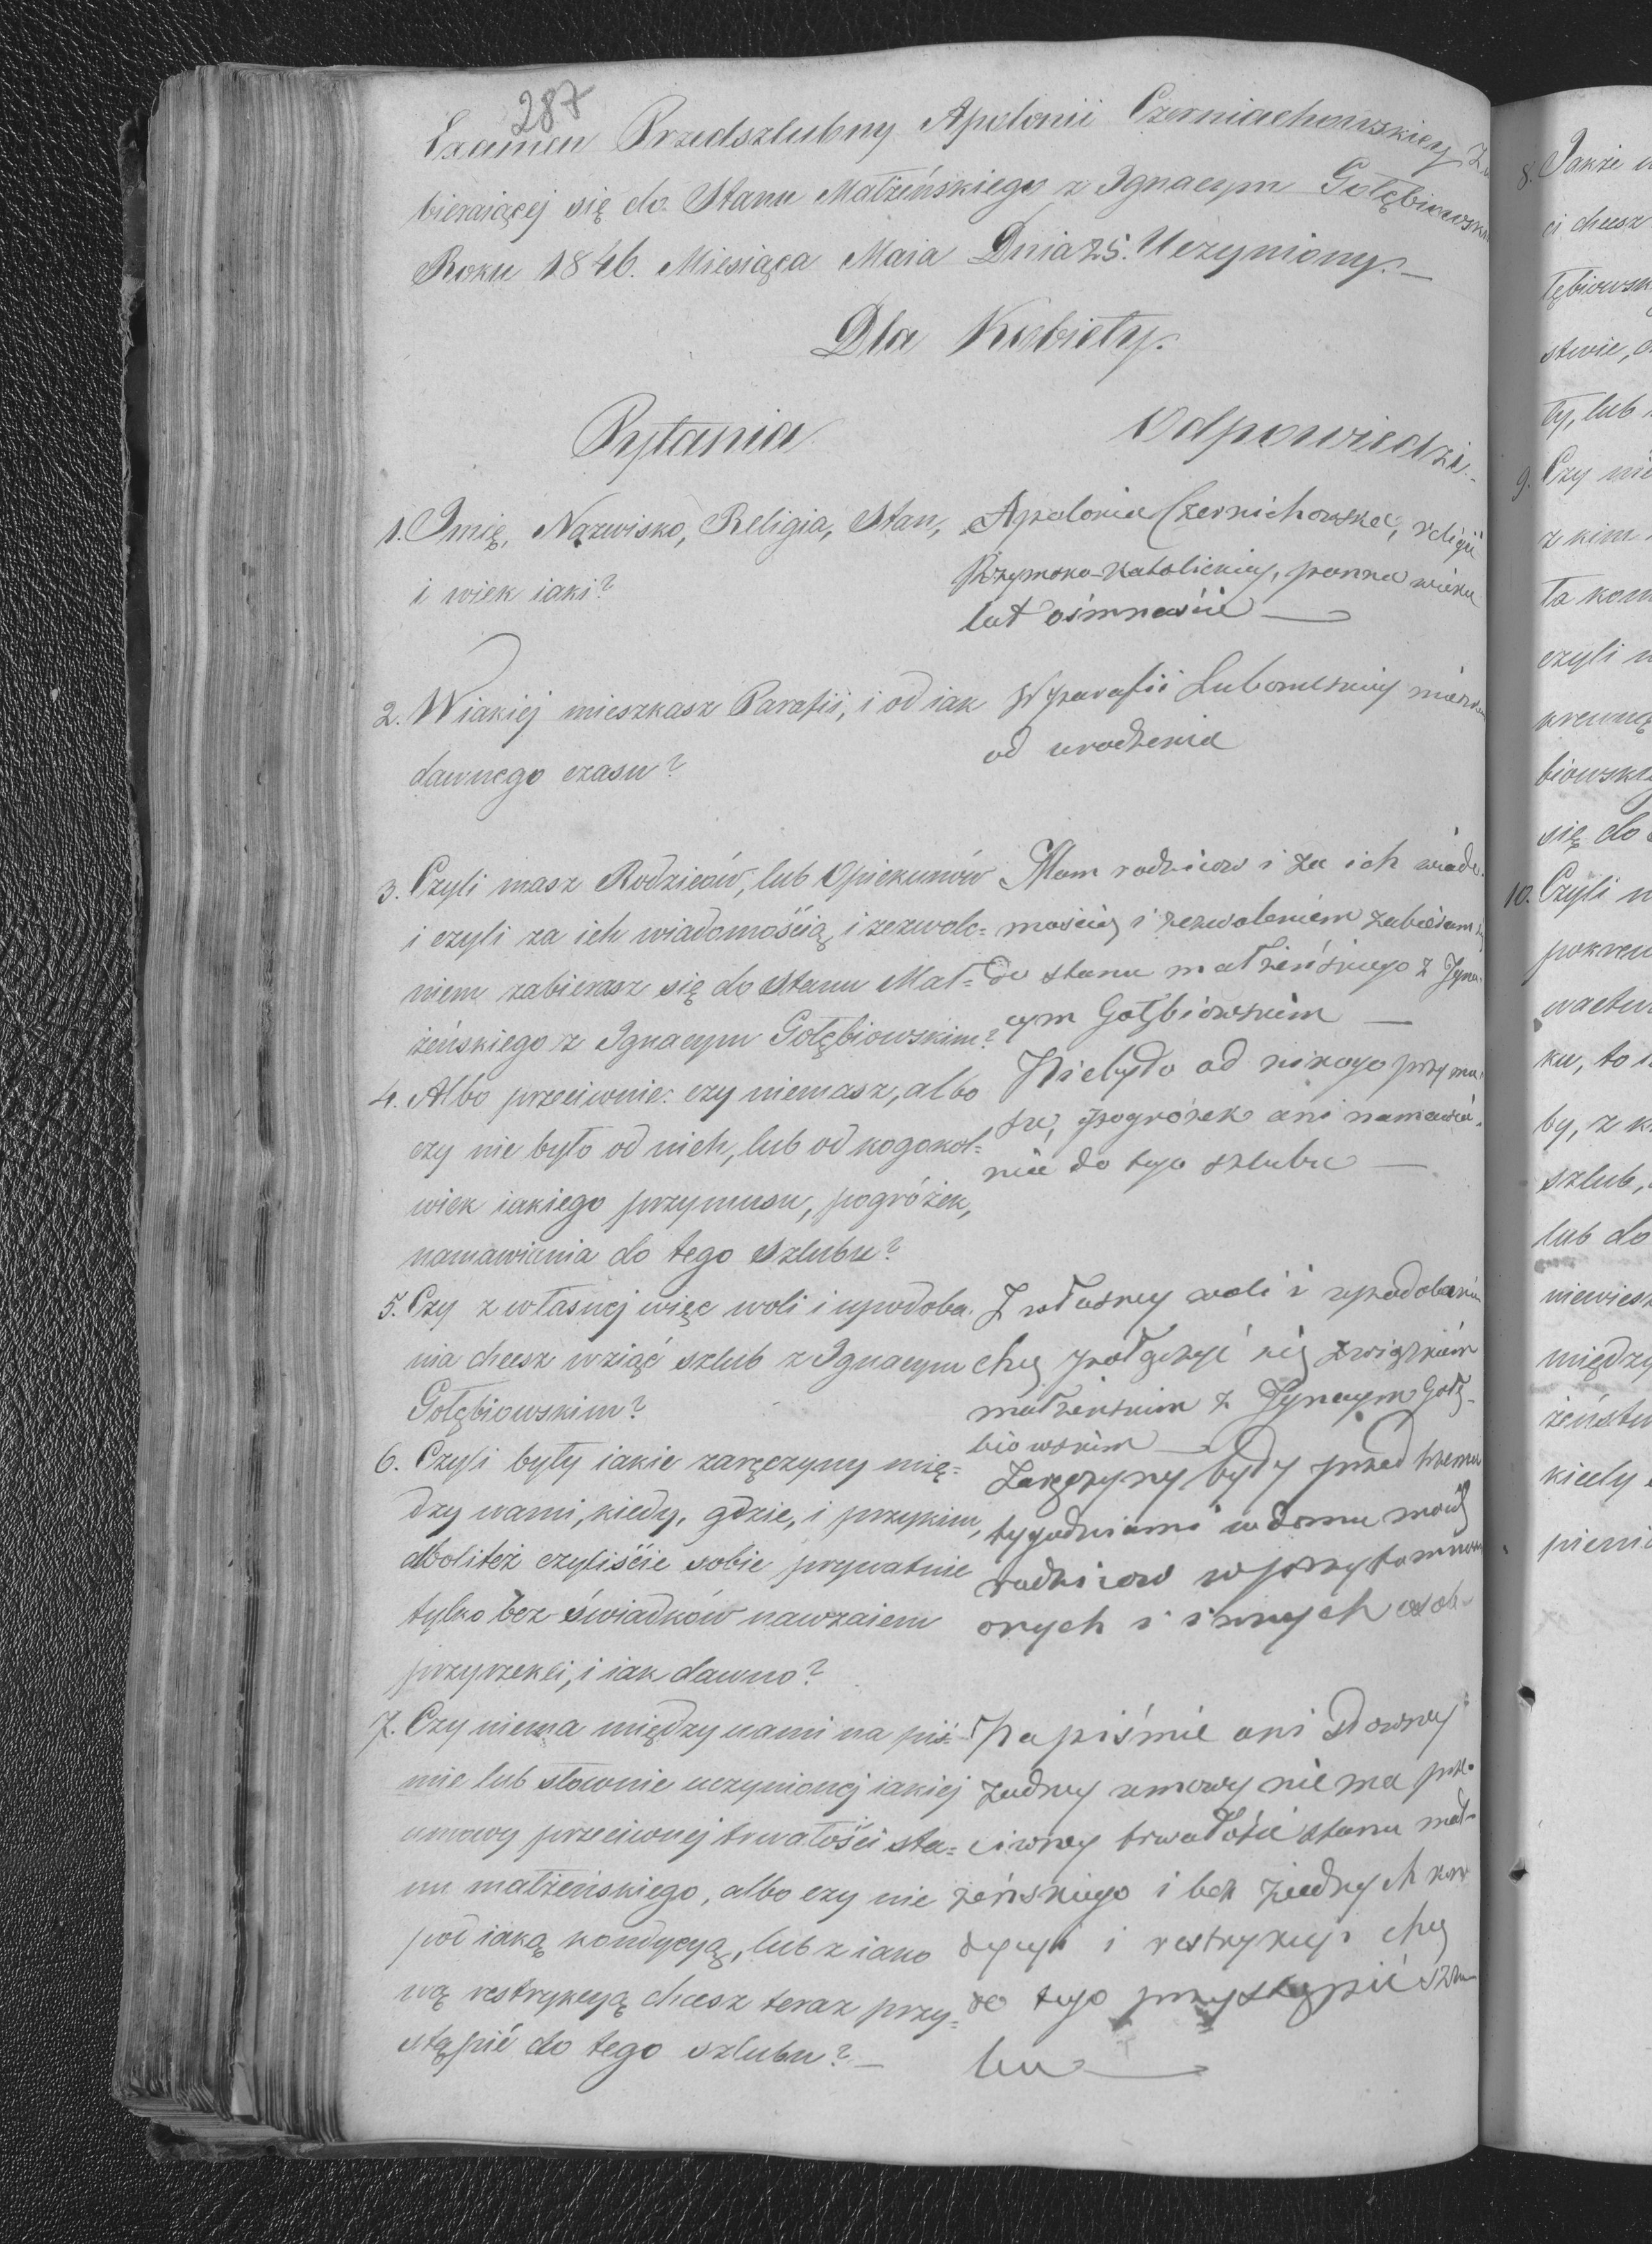 287
Examen Przedszlubny Apolonii Czerniachowskiey Za
bieraiącej się do Stanu Małżeńskiego z Ignacym Gołębiowskim
Roku 1846. Miesiąca Maia Dnia 25. Uczyniony.
Dla Kobiety.
Pytania
Odpowiedzi.
1. Imię, Nazwisko, Religia, Stan,
i wiek iaki?
Apolonia Czernichowska, religii
Rzymsko-Katolickiey, panna wieku
lat ośmnaście
2. W iakiej mieszkasz Parafii, i od iak
dawnego czasu?
W parafii Lubomlskiey
od urodzenia
3. Czyli masz Rodziców, lub Opiekunów
i czyli za ich wiadomością, i zezwole=
niem zabierasz się do Stanu Mał=
żeńskiego z Ignacym Gołębiowskim?
Mam rodzicow i za ich wiado
mością i zezwoleniem zabieram się
do stanu małżeńskiego z Igna
cym Gołębiowskim
4. Albo przeciwnie: czy niemasz, albo
czy nie było od nich, lub od kogokol=
wiek iakiego przymusu, pogróżek,
namawiania do tego Szlubu?
Niebyło od nikogo przymu
su, pogrożek ani namawia
nia do tego szlubu
5. Czy z własnej więc woli i upodoba
nia chcesz wziąć szlub z Ignacym
Gołębiowskim?
Z własney woli i upodobania
chcę połączyć się związkiem
małżenskim z Ignacym Gołę-
biowskim
6. Czyli były iakie zaręczyny mię=
dzy wami, kiedy, gdzie, i przykim,
alboliteż czyliście sobie prywatnie
tylko bez świadków nawzaiem
przyrzekli, i iak dawno?
Zaręczyny były przed trzema
tygodniami w domu moich
rodzicow w przytomności
onych i innych osob
7. Czy niema między wami na piś=
mie lub słownie uczynionej iakiej
umowy przeciwnej trwałości sta=
nu małżeńskiego, albo czy nie
pod iaką kondycyą, lub z iako
wą restrykcyą chcesz teraz przy=
stąpić do tego szlubu?
Na piśmie ani słowney
żadney umowy nie ma prze
ciwney trwałości stanu mał
żeńskiego i bez żadnych kon
dycyi i restrykcyi chcę
do tego przystąpić szlu
bu
8. Jakże
ci chcesz
łębiowsk
stwie,
ty, lub
9. Czy nie
z kim
ta kom
czyli
krewną
biowski
się do
10. Czyli
pokrew
ku, to
by, z
szlub,
lub do
niewiesz
między
żeństw
kiedy